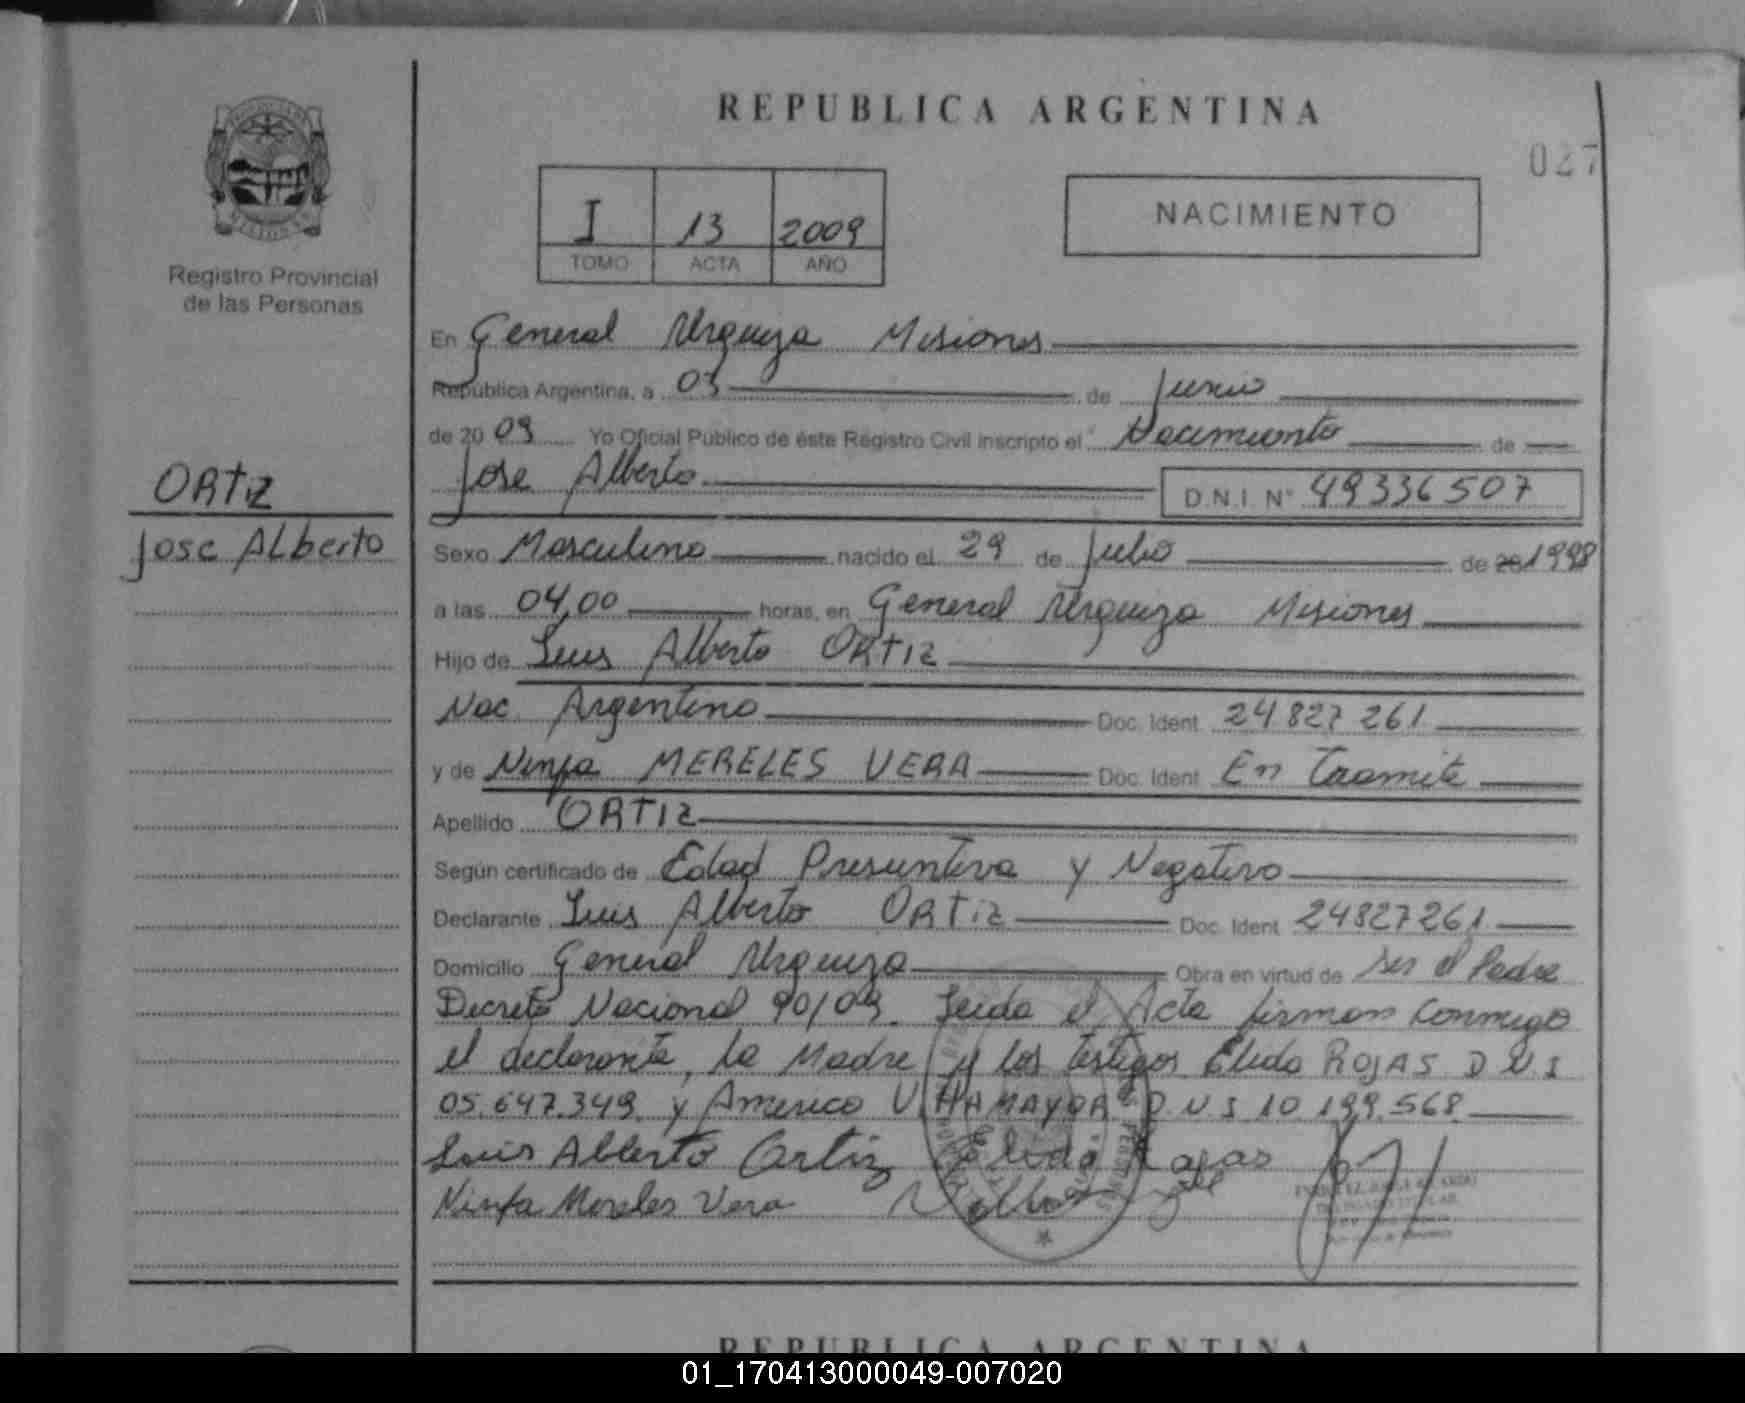 REPUBLICA ARGENTINA
027
I 13 2009
TOMO ACTA AÑO
NACIMIENTO
Registro Provincial
de las Personas
ORTIZ
Jose ALberto
En General Urquiza Misiones
República Argentina, a 03 de Junio
de 20 09 Yo Oficial Público de éste Registro Civil inscripto el Nacimiento de
Jose Alberto D.N.I. N° 49336507
Sexo Masculino nacido el 29 de Julio de 20 1998
a las 04,00 horas, en General Urquiza Misiones
Hijo de Luis Alberto ORTIZ
Nac. Argentino Doc. Ident. 24.827.261
y de Ninfa MERELES VERA Doc. Ident. En Tramite
Apellido ORTIZ
Según certificado de Edad Presuntiva y Negativo
Declarante Luis Alberto ORTIZ Doc. Ident. 24827261
Domicilio General Urquiza Obra en virtud de ser el Padre
Decreto Nacional 90/09. Leida el Acta firman conmigo
el declarante, la Madre y los testigos Elida ROJAS D N I
05.647.349 y Americo VILLAMAYOR D.N I 10.199.568
Luis Alberto Ortiz Elida Rojas
Ninfa Mereles Vera
REPUBLICA ARGENTINA
01_170413000049-007020